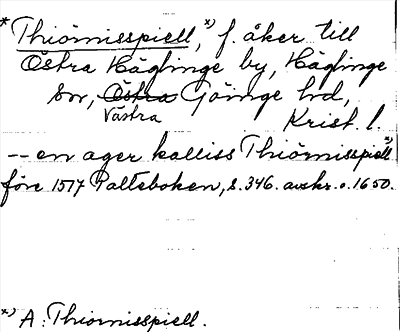 *Thiörnisspiell,*) f. åker till
Östra Häglinge by, Häglinge
sn, Östra Göinge hd,
Västra
Krist. l.
-- en ager kalliss Thiörnisspiell*)
före 1517 Palteboken, s. 346. avskr. o. 1650.
*) A: Thiornisspiell.